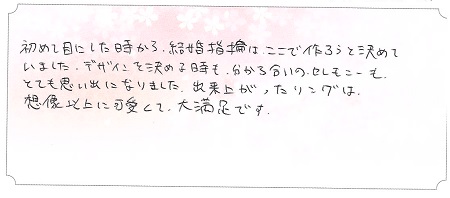 初めて目にした時から、結婚指輪はここで作ろうと決めて
いました。デザインを決める時も、分かち合いのセレモニーも、
とても思い出になりました。出来上がったリングは、
想像以上に可愛くて、大満足です。